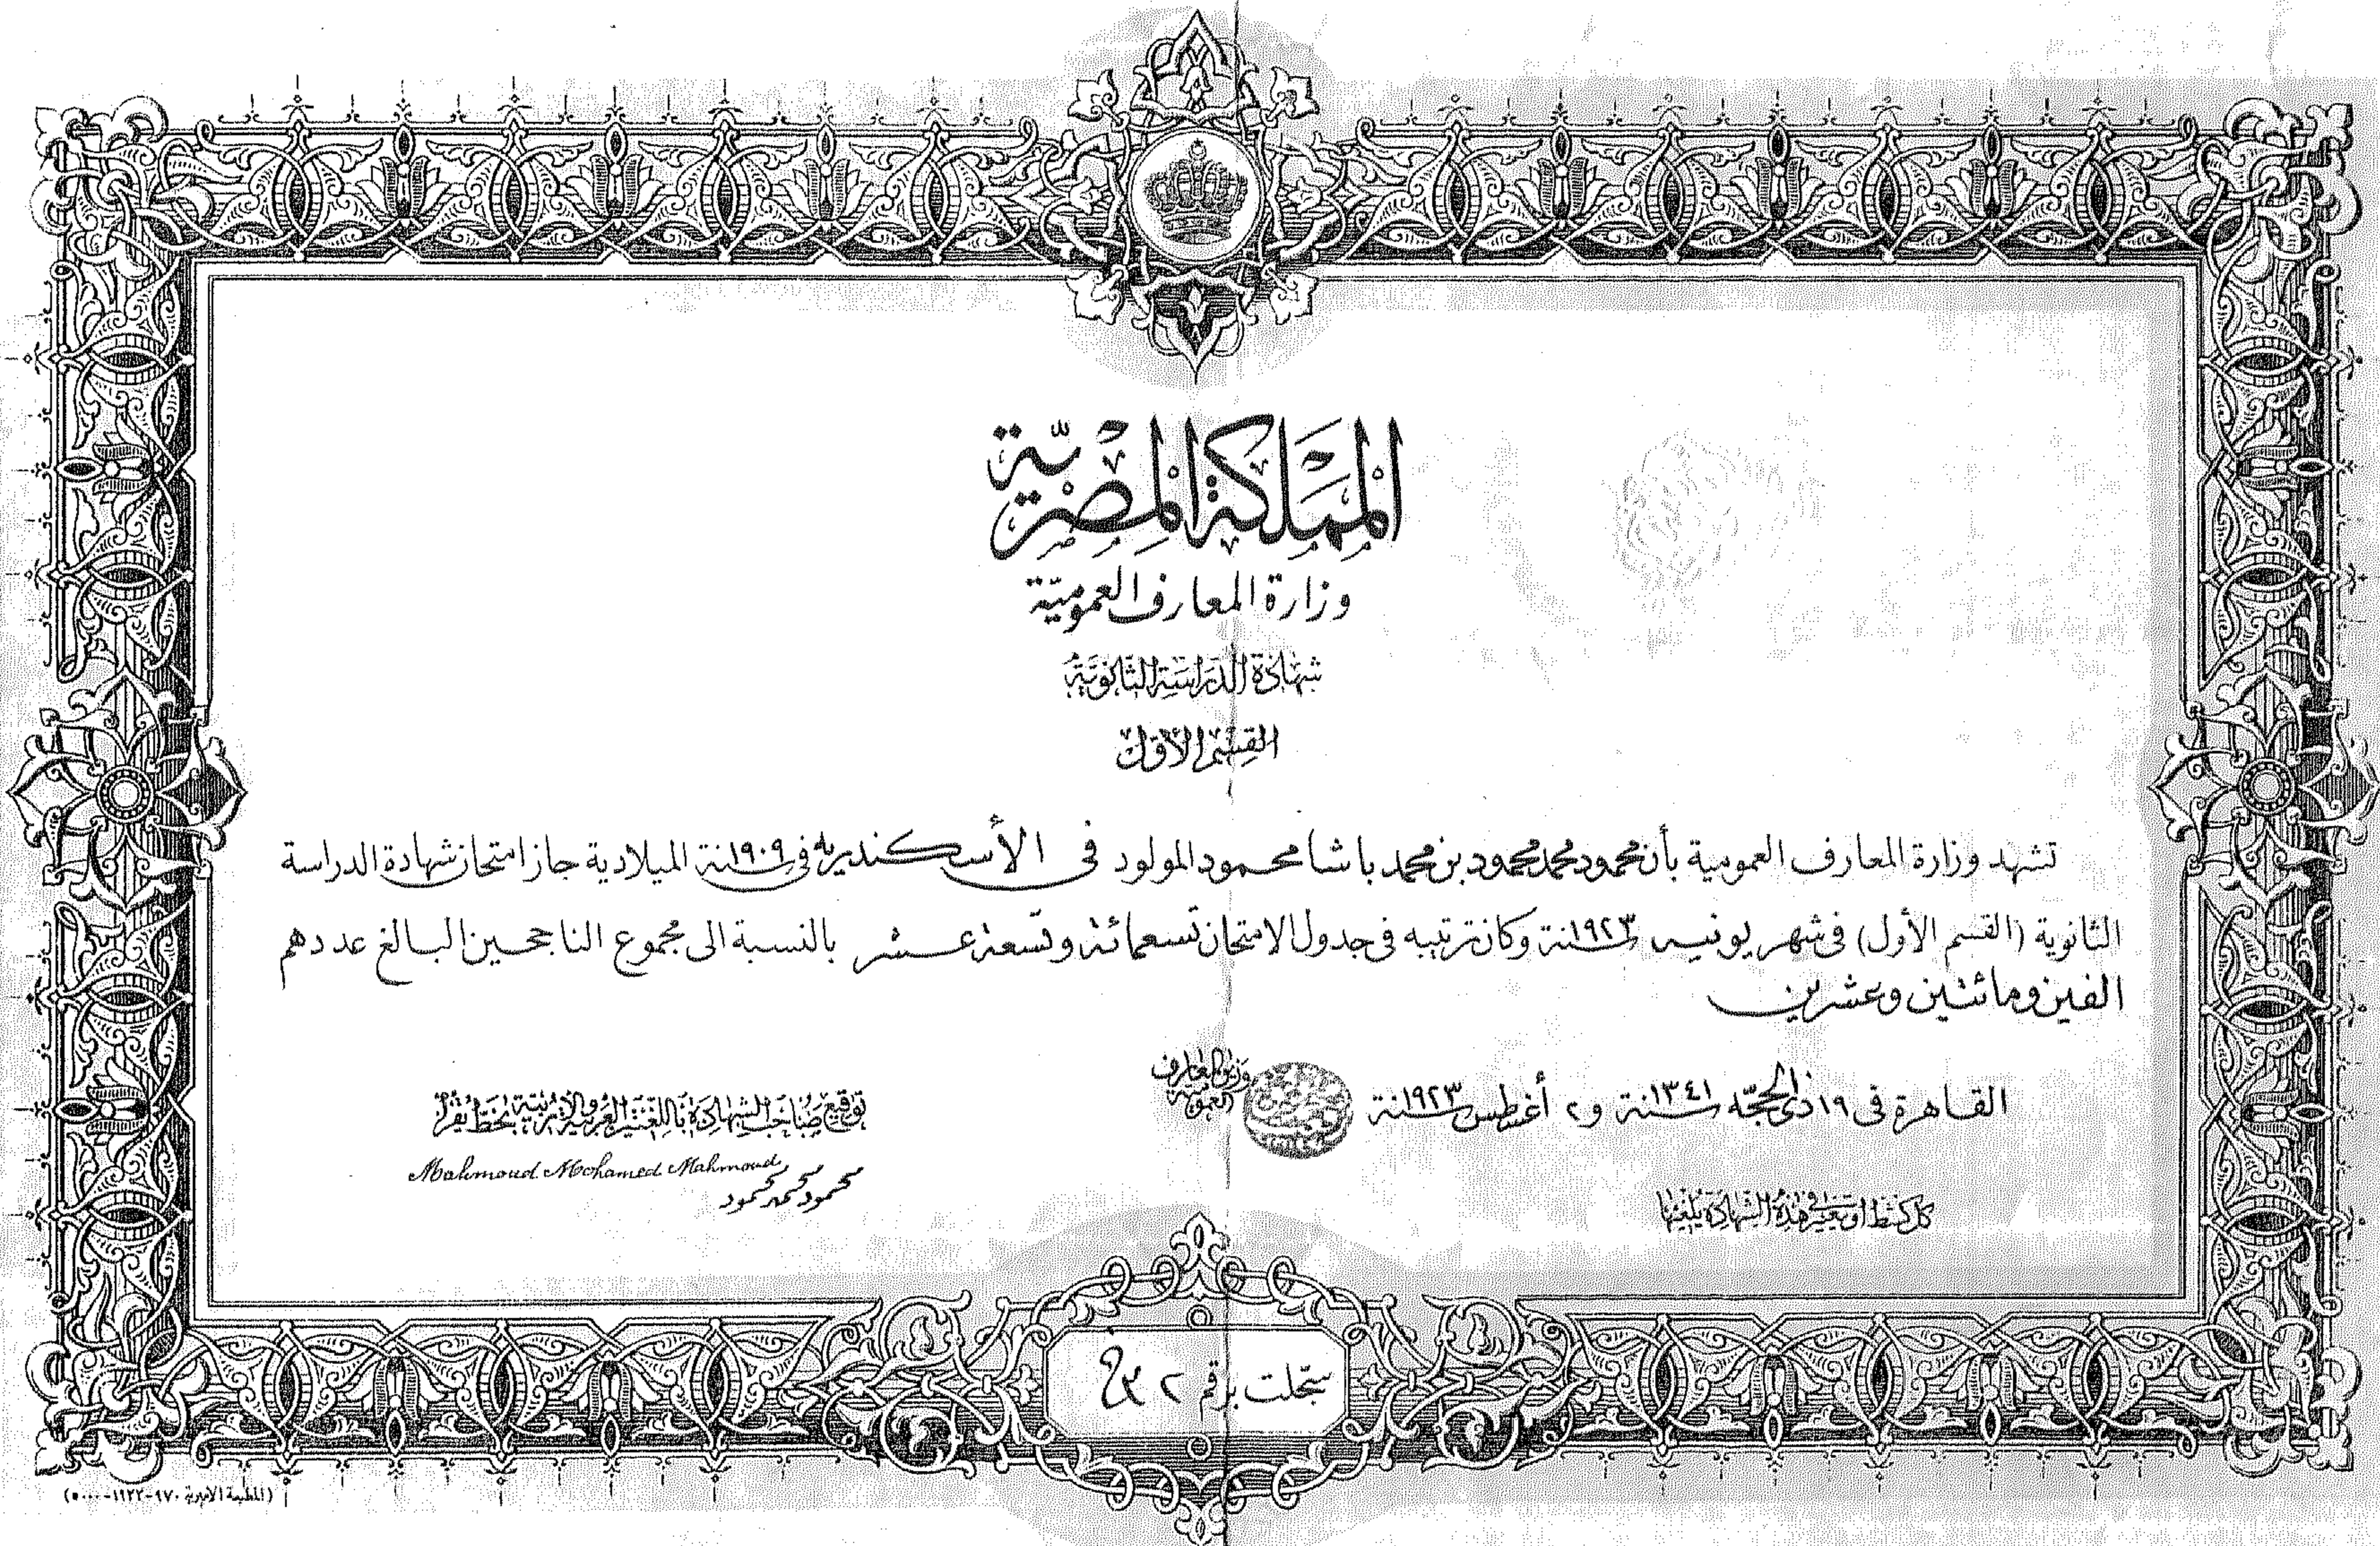 المملكة المصرية
وزارة المعارف العمومية
شهادة الدراسة الثانوية
القسم الأول
تشهد وزارة المعارف العمومية بأن محمود محمد محمود بن محمد باشا محمود المولود في الأسكندرية في سنة ١٩٠٩ الميلادية جاز امتحان شهادة الدراسة
الثانوية (القسم الأول) في شهر يونيه سنة ١٩٢٣ وكان ترتيبه في جدول الامتحان تسعمائة وتسعة عشر بالنسبة الى مجموع الناجحين البالغ عددهم
الفين ومائتين وعشرين
القاهرة في ١٩ ذي الحجة سنة ١٣٤١ و ٢ أغسطس سنة ١٩٢٣
وزير المعارف العمومية
توقيع صاحب الشهادة باللغتين العربية والاوربية بخط يقرأ
Mahmoud Mohamed Mahmoud
محمود محمد محمود
كل كشط او تغيير في هذه الشهادة يلغيها
سجلت برقم
(المطبعة الاميرية ٩٧٠-١٩٢٢-٥٠٠٠)